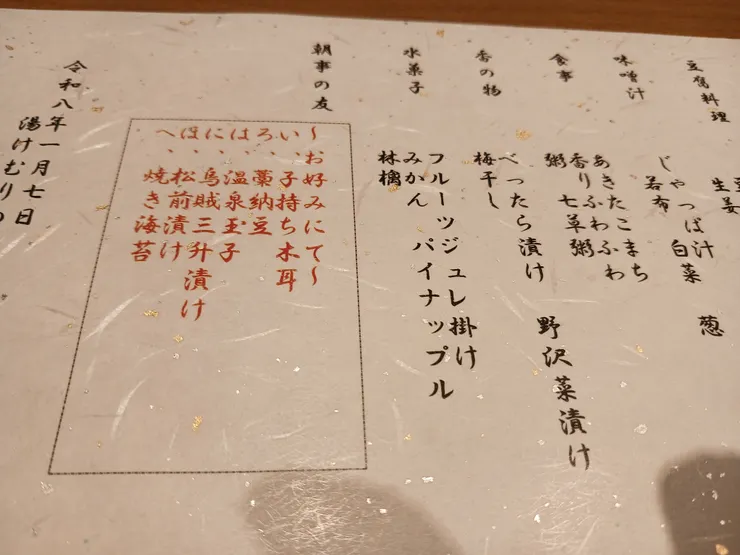 豆腐料理
生姜 葱
味噌汁
じゃっぱ汁
若布 白菜
食事
あきたこまち
香りふわふわ
粥 七草粥
香の物
べったら漬け 野沢菜漬け
梅干し
水菓子
フルーツジュレ掛け
みかん パイナップル
林檎
朝事の友
～お好みにて～
い、子持ち木耳
ろ、藁納豆
は、温泉玉子
に、烏賊三升漬け
ほ、松前漬け
へ、焼き海苔
令和八年一月七日
湯けむりの